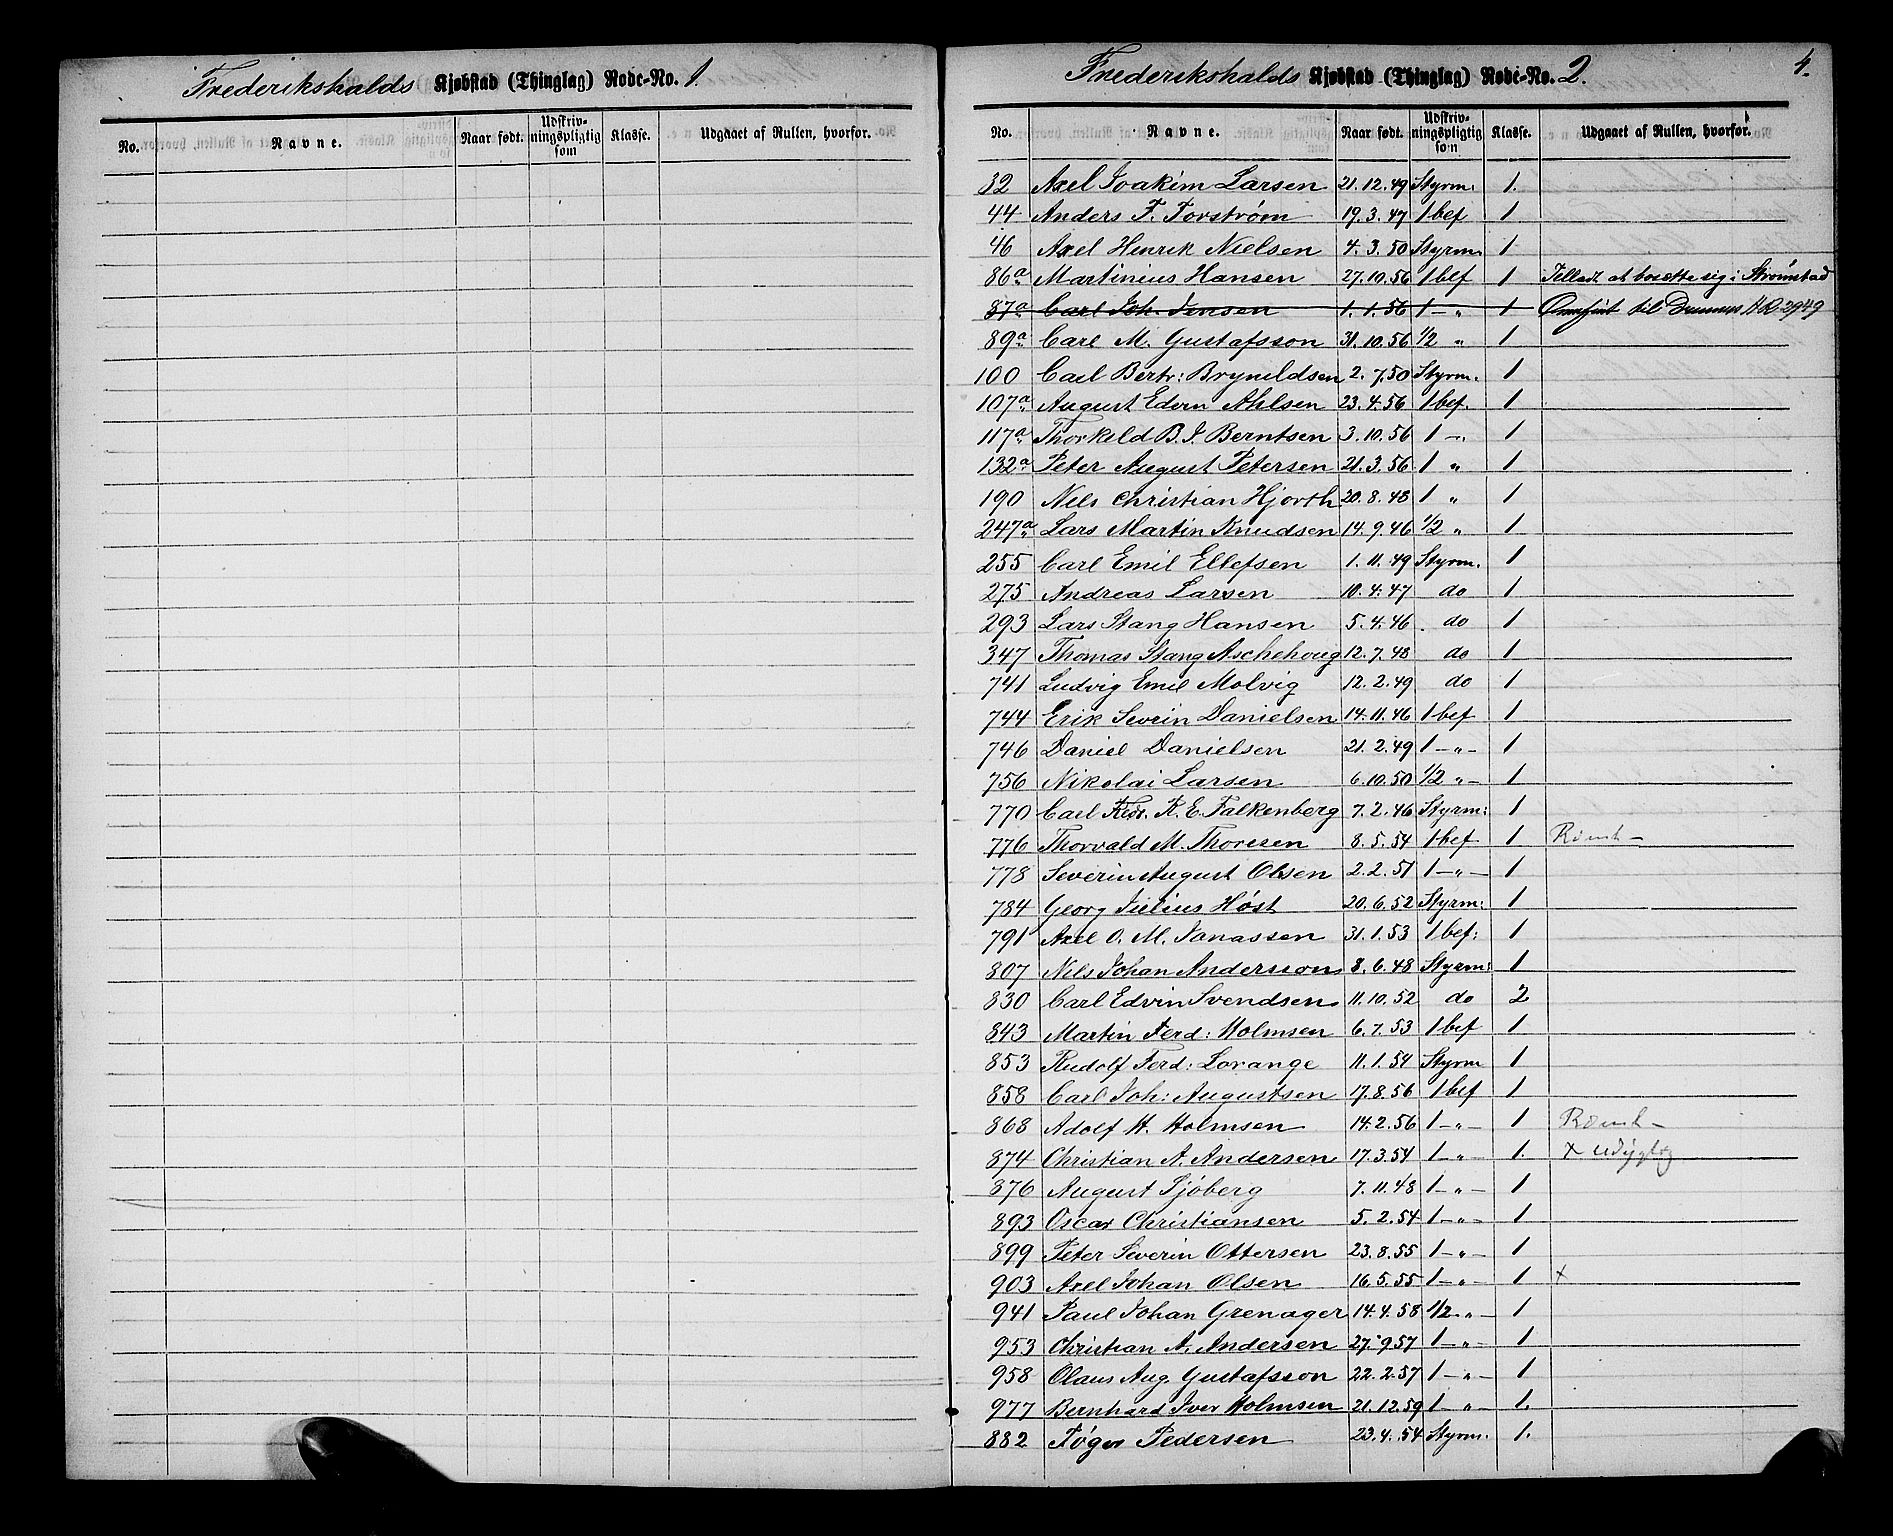 Frederikshalds Kjøbstad (Thinglag) Rode-No. 1.
No. Navne. Naar født. Udskrivningspligtig som Klasse. Udgaaet af Rullen, hvorfor.
Frederikshalds Kjøbstad (Thinglag) Rode-No. 2. 4.
No. Navne. Naar født. Udskrivningspligtig som Klasse. Udgaaet af Rullen, hvorfor.
32 Axel Joakim Larsen 21.12.49 Styrm. 1.
44 Anders F. Forström 19.3.47 1 bef 1
46 Axel Henrik Nielsen 4.3.50 Styrm. 1
86a Martinius Hansen 27.10.56 1 bef 1 Tilladt at bosætte sig i Strömstad
87a Carl Joh. Jensen 1.1.56 1 — " 1 til 2949
89a Carl M. Gustafsson 31.10.56 1/2 " 1
100 Carl Bertr: Brynildsen 2.7.50 Styrm. 1
107a August Edvin Ahlsen 23.4.56 1 bef. 1
117a Thorkeld B. J. Berntsen 3.10.56 1 — " 1
132a Peter August Petersen 21.3.56 1 " 1
190 Nels Christian Hjorth 20.8.48 1 " 1
247a Lars Martin Knudsen 14.9.46 1/2 " 1
255 Carl Emil Ellefsen 1.11.49 Styrm. 1
275 Andreas Larsen 10.4.47 do 1
293 Lars Stang Hansen 5.4.46. do 1
347 Thomas Stang Aschehoug 12.7.48 do 1
741 Ludvig Emil Molvig 12.2.49 do 1
744 Erik Severin Danielsen 14.11.46 1 bef 1
746 Daniel Danielsen 21.2.49 1 — " — 1
756 Nikolai Larsen 6.10.50 1/2 " — 1
770 Carl Fredr. R. E. Falkenberg 7.2.46 Styrm: 1
776 Thorvald M. Thoresen 8.5.54 1 bef 1
778 Severin August Olsen 2.2.51 1 — " — 1
784 Georg Julius Høst 20.6.52 Styrm: 1
791 Axel O. M. Jonassen 31.1.53 1 bef: 1
807 Nils Johan Anderssons 8.6.48 Styrm: 1
830 Carl Edvin Svendsen 11.10.52 do 2
843 Martin Ferd: Holmsen 6.7.53 1 bef 1
853 Rudolf Ferd: Lorange 11.1.54 Styrm 1
858 Carl Joh: Augustsen 17.8.56 1 bef 1
868 Adolf H. Holmsen 14.2.56 1 — " — 1
874 Christian A. Andersen 17.3.54 1 — " — 1. x
876 August Sjöberg 7.11.48 1 — " — 1
893 Oscar Christiansen 5.2.54 1 — " — 1
899 Peter Severin Ottersen 23.8.55 1 — " — 1
903 Axel Johan Olsen 16.5.55 1 — " — 1 x
941 Paul Johan Grenager 14.4.58 1/2 " — 1
953 Christian A. Andersen 27.9.57 1 — " — 1
958 Olaus Aug. Gustafsson 22.2.57 1 — " — 1
977 Bernhard Iver Holmsen 21.12.59 1 — " — 1.
882 Føger Pedersen 23.4.54 Styrm. 1.